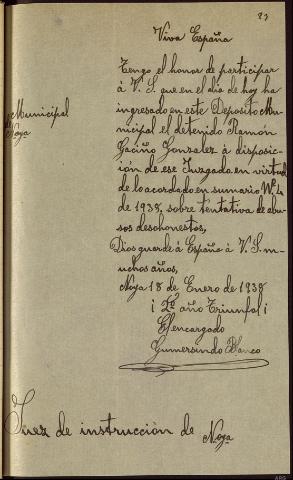 23
Viva España
Tengo el honor de participar
á V. S. que en el dia de hoy ha
ingresado en este Deposito Mu-
nicipal el detenido Ramón
Gaciño Gonzalez á disposic-
ión de ese Juzgado en virtud
de lo acordado en sumario Nº 4
de 1938, sobre tentativa de abu-
sos deschonestos,
Dios guarde á España á V. S. m-
uchos años,
Noya 18 de Enero de 1938
¡ 2º año Triunfal ¡
El encargado
Gumersindo Blanco
Municipal
Noya
Juez de instrucción de Noya